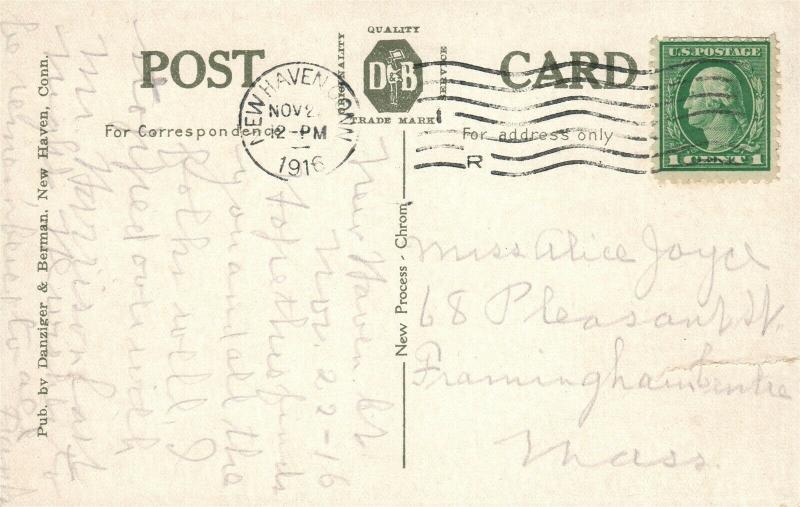 POST CARD
QUALITY
ORIGINALITY
SERVICE
D&B
TRADE MARK
For Correspondence
For address only
NEW HAVEN CONN
NOV 2
12-PM
1916
R
U.S. POSTAGE
1 CENT 1
New Process - Chrom
Pub. by Danziger & Berman, New Haven, Conn.
New Haven Ct
Nov. 22-16
hope this finds
you and all the
folks well. I
with
Mrs Harrison
Miss Alice Joyce
68 Pleasant St.
Framingham Centre
Mass.